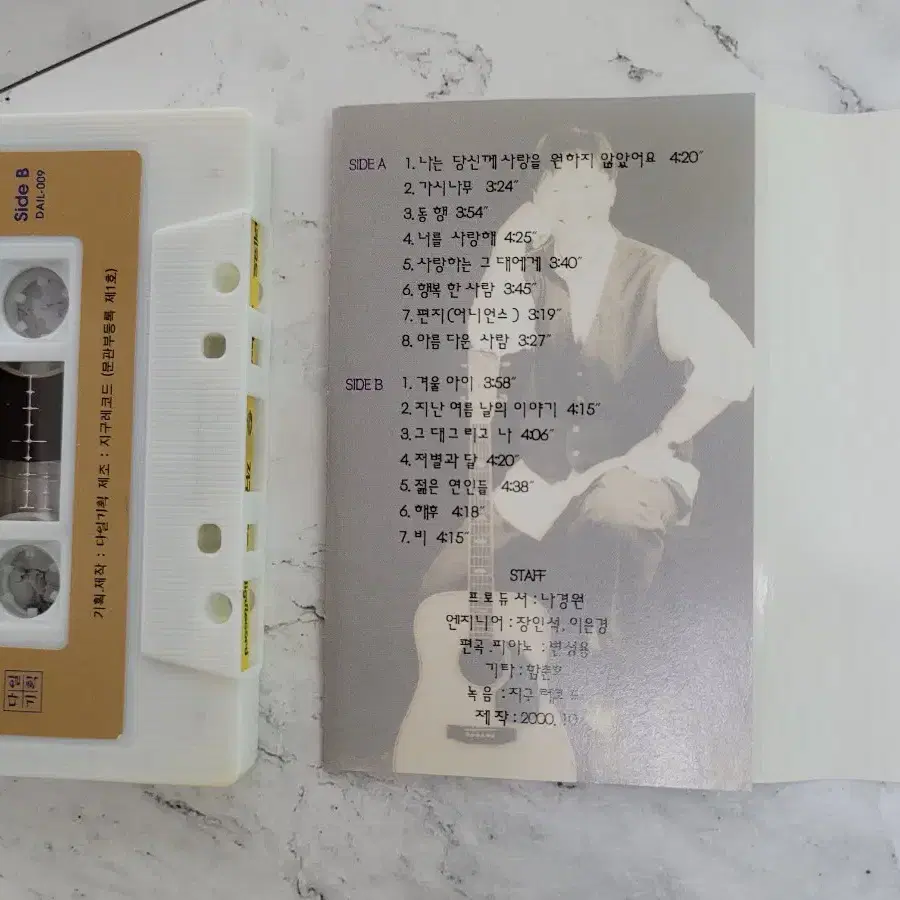 Side B
DAIL-009
기획.제작 : 다일기획 제조 : 지구레코드 (문관부등록 제1호)
다일
기획
SIDE A
1. 나는 당신께 사랑을 원하지 않았어요 4:20"
2. 가시나무 3:24"
3. 동행 3:54"
4. 너를 사랑해 4:25"
5. 사랑하는 그대에게 3:40"
6. 행복 한 사람 3:45"
7. 편지(어니언스) 3:19"
8. 아름 다운 사람 3:27"
SIDE B
1. 겨울 아이 3:58"
2. 지난 여름 날의 이야기 4:15"
3. 그대그리고 나 4:06"
4. 저별과 달 4:20"
5. 젊은 연인들 4:38"
6. 해후 4:18"
7. 비 4:15"
STAFF
프로듀서 : 나경원
엔지니어 : 장인석, 이은경
편곡.피아노 : 변성용
기타 : 함춘호
녹음 : 지구
제작 : 2000. 10